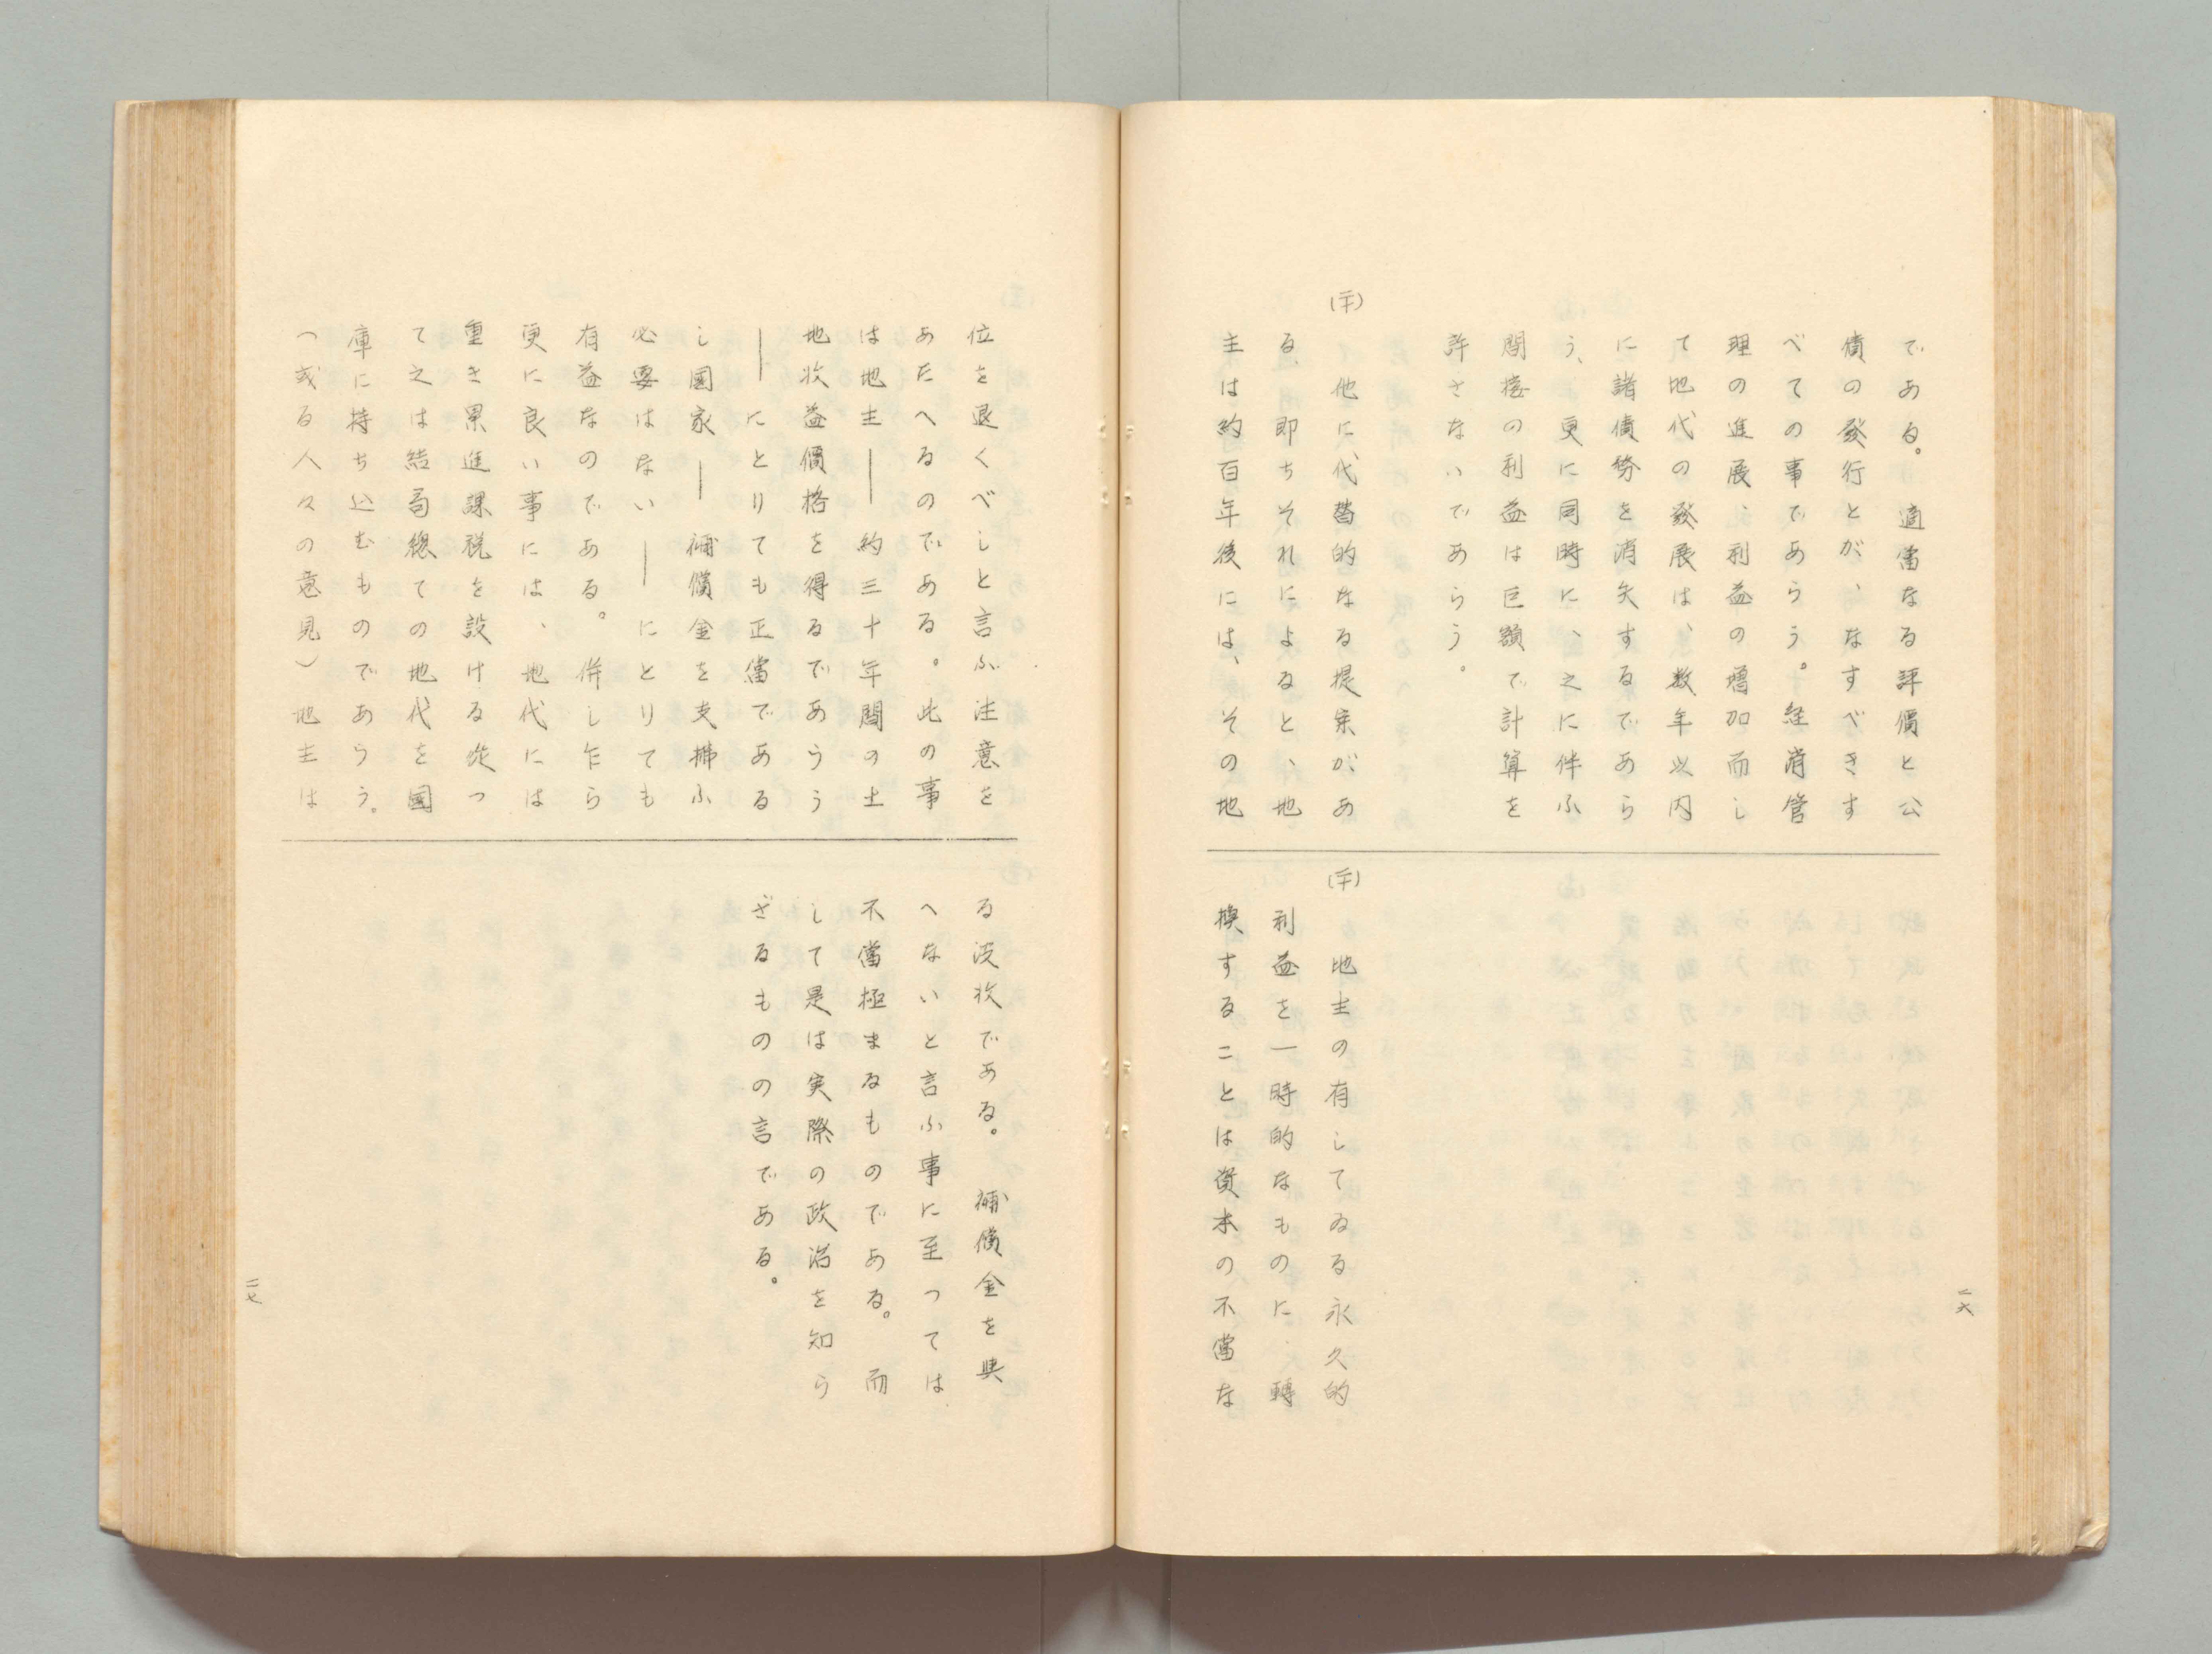 である。適當なる評價と公
債の發行とが、なすべきす
べての事であらう。経済管
理の進展、利益の増加而し
て地代の發展は、数年以内
に諸債務を消失するであら
う、更に同時に、之に伴ふ
間接の利益は巨額で計算を
許さないであらう。
(二十) 他に、代替的なる提案があ
る、即ちそれによると、地
主は約百年後には、その地
(二十) 地主の有してゐる永久的
利益を一時的なものに轉
換することは資本の不當な
二六
位を退くべしと言ふ注意を
あたへるのである。此の事
は地主——約三十年間の土
地收益價格を得るであらう
——にとりても正當である
し國家——補償金を支拂ふ
必要はない——にとりても
有益なのである。併し乍ら
更に良い事には、地代には
重き累進課税を設ける従つ
て之は結局總ての地代を國
庫に持ち込むものであらう。
(或る人々の意見)地主は
る没收である。補償金を與
へないと言ふ事に至つては
不當極まるものである。而
して是は実際の政治を知ら
ざるものの言である。
二七